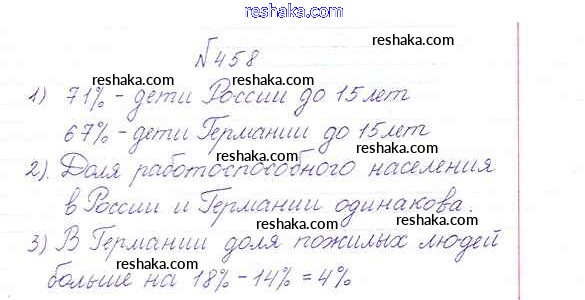 reshaka.com
№458
reshaka.com
reshaka.com
1) 71% - дети России до 15 лет
reshaka.com
67% - дети Германии до 15 лет
reshaka.com
reshaka.com
2). Доля работоспособного населения
reshaka.com
в России и Германии одинакова.
reshaka.com
reshaka.com
3) В Германии доля пожилых людей
reshaka.com
больше на 18% - 14% = 4%
reshaka.com